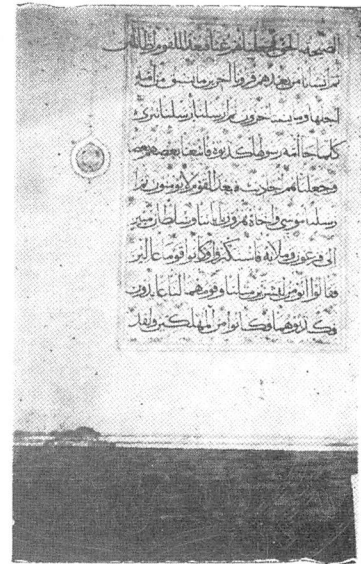 الصيحة بالحق فجعلناهم غثاء فبعدا للقوم الظالمين
ثم انشانا من بعدهم قرونا اخرين ما تسبق من امة
اجلها وما يستاخرون ثم ارسلنا رسلنا تترى
كلما جا امة رسولها كذبوه فاتبعنا بعضهم بعضا
وجعلناهم احاديث فبعدا لقوم لا يومنون ثم ا
رسلنا موسى واخاه هرون باياتنا وسلطان مبين
الى فرعون وملائه فاستكبروا وكانوا قوما عالين
فقالوا انومن لبشرين مثلنا وقومهما لنا عابدون
فكذبوهما فكانوا من المهلكين ولقد